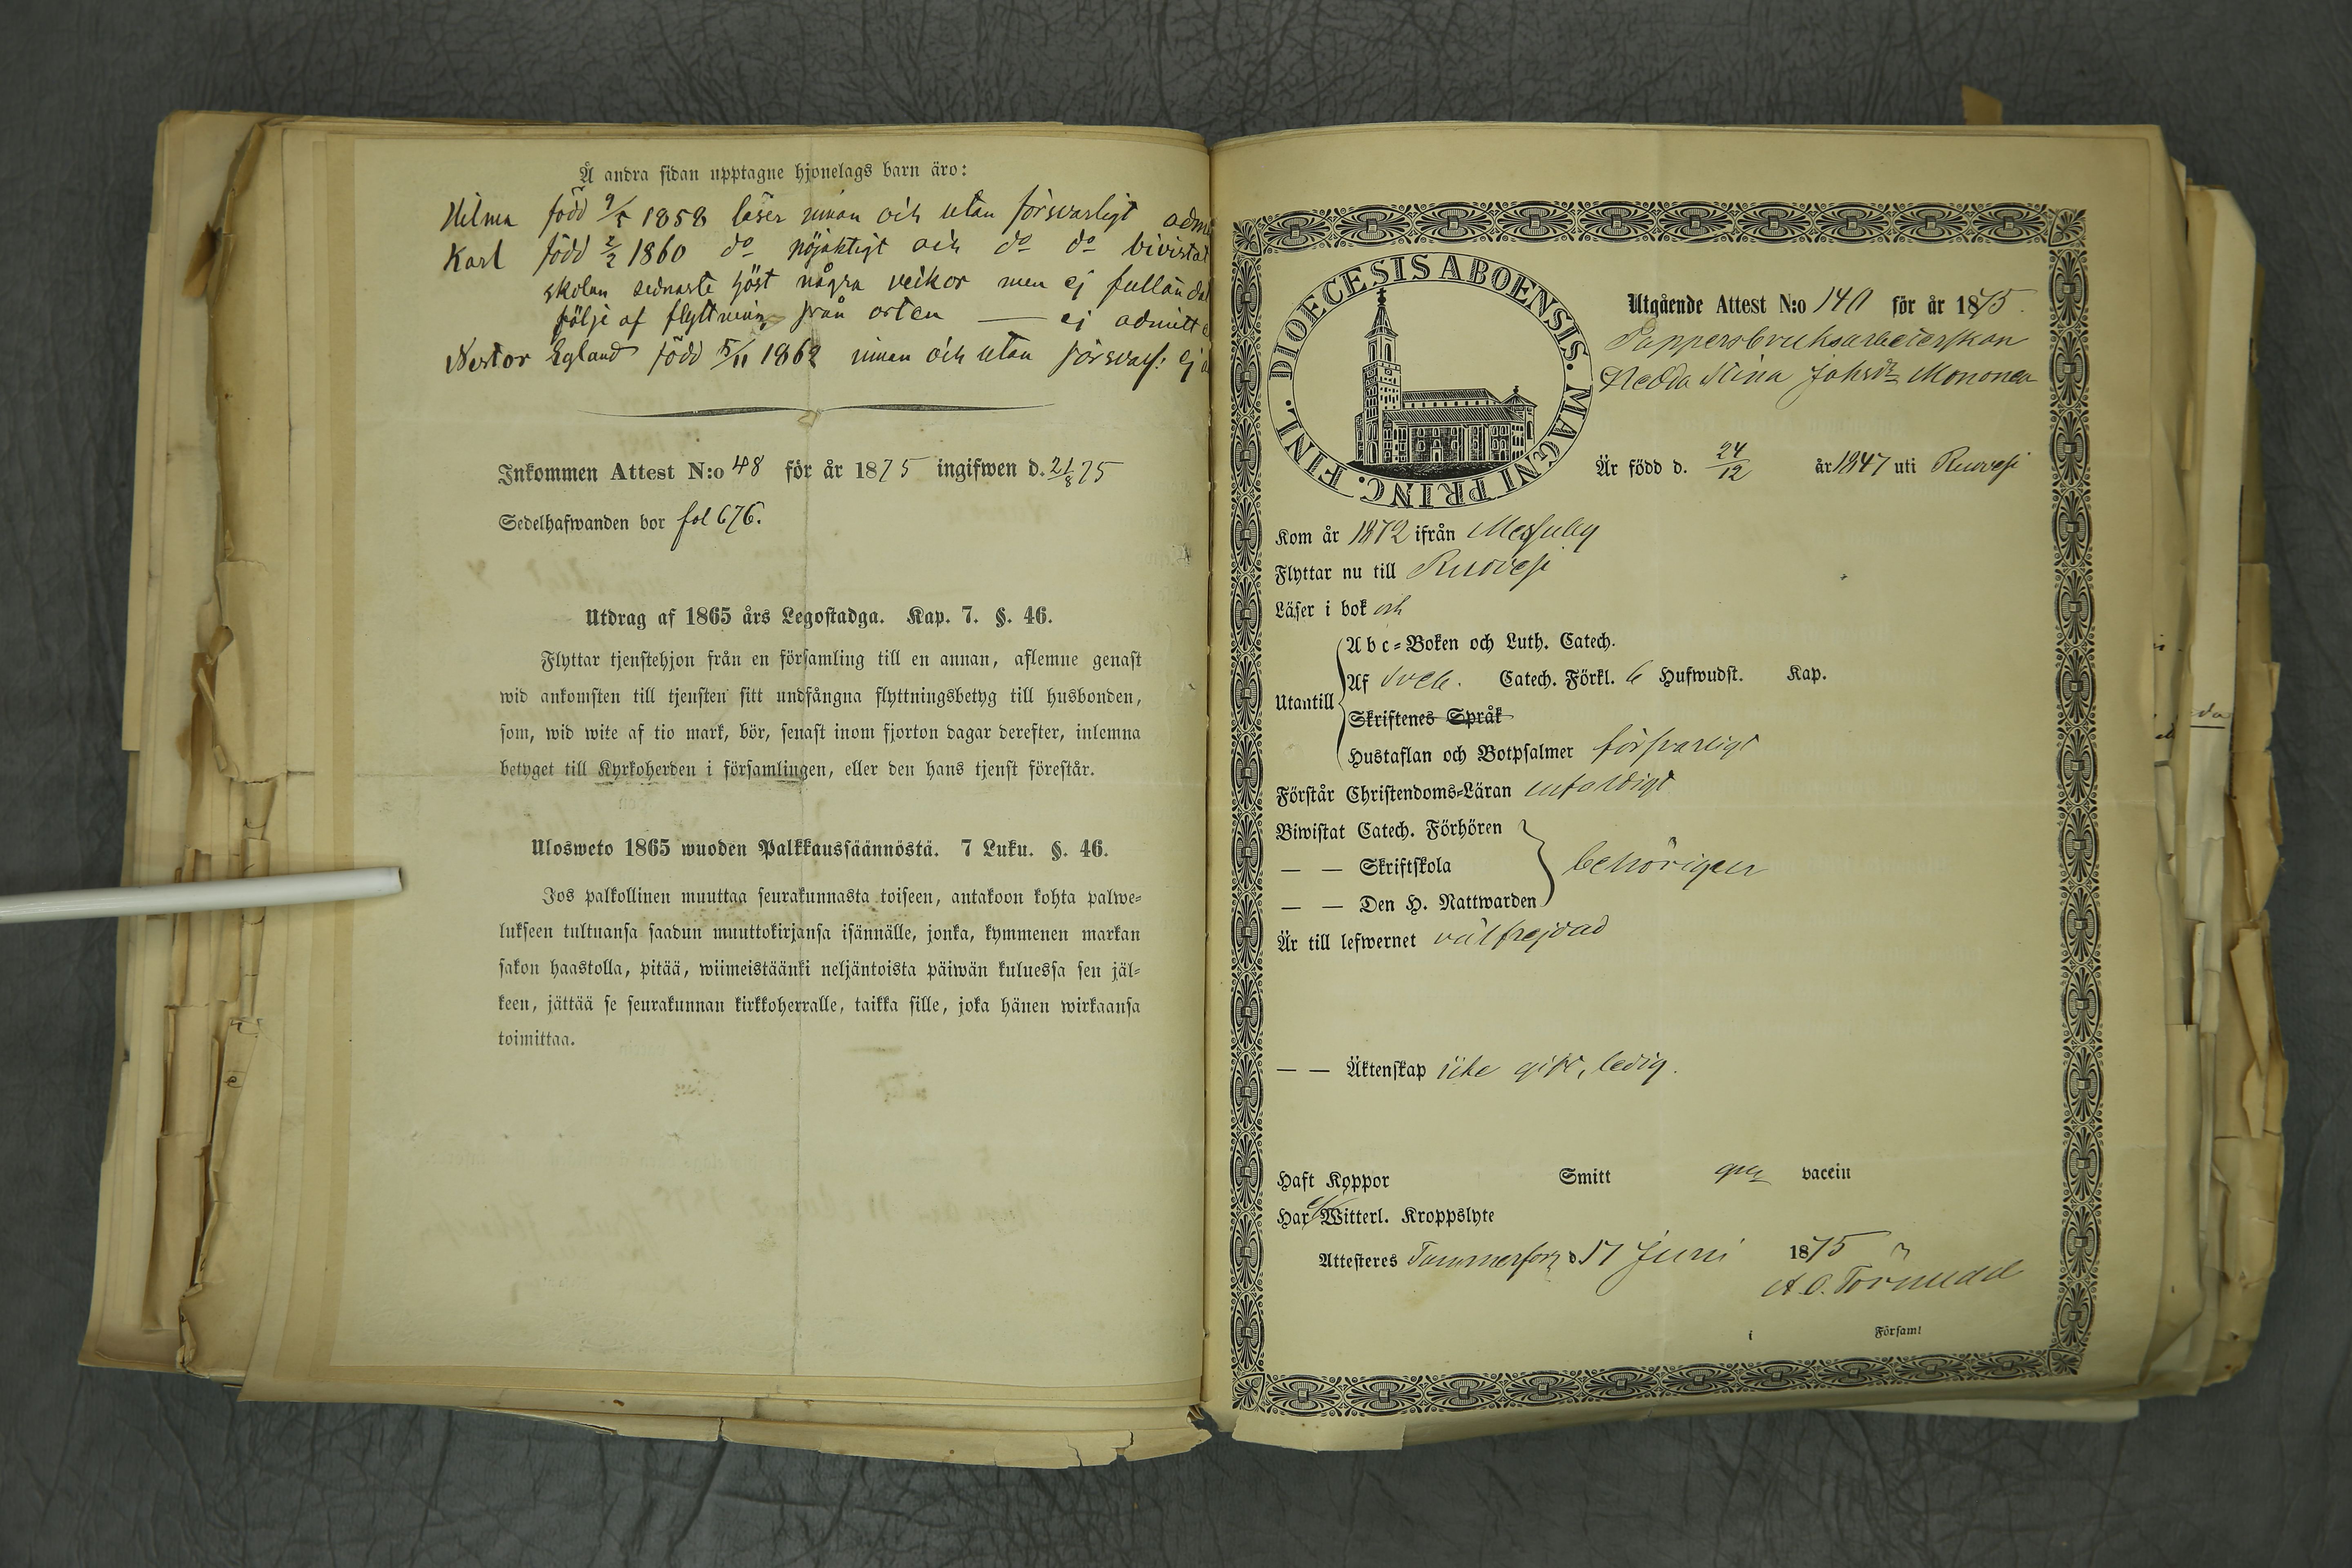 Å andra sidan upptagne hjonelags barn äro:
Hilma född 9/5 1858 läser innan och utan försvarligt adm
Karl född 2/2 1860 do nöjaktigt och do do bivistat
skolan sednaste höst några veckor men ej fulländat
följe af flyttning från orten — ej admitte
Nestor Egland född 5/11 1862 innan och utan försvarl: ej a
Inkommen Attest N:o 48 för år 1875 ingifwen d. 21/8 75
Sedelhafwanden bor fol 676.
Utdrag af 1865 års Legostadga. Kap. 7. §. 46.
Flyttar tjenstehjon från en församling till en annan, aflemne genast
wid ankomsten till tjensten sitt undfångna flyttningsbetyg till husbonden,
som, wid wite af tio mark, bör, senast inom fjorton dagar derefter, inlemna
betyget till Kyrkoherden i församlingen, eller den hans tjenst förestår.
Ulosweto 1865 wuoden Palkkaussäännöstä. 7 Luku. §. 46.
Jos palkollinen muuttaa seurakunnasta toiseen, antakoon kohta palwe-
lukseen tultuansa saadun muuttokirjansa isännälle, jonka, kymmenen markan
sakon haastolla, pitää, wiimeistäänki neljäntoista päiwän kuluessa sen jäl-
keen, jättää se seurakunnan kirkkoherralle, taikka sille, joka hänen wirkaansa
toimittaa.
DIOECESIS ABOENSIS. MAGNI PRINC. FINL.
Utgående Attest N:o 140 för år 1875.
Pappersbruksarbeterskan
Hedda Stina Johsdr Mononen
Är född d. 24/12 år 1847 uti Ruovesi
Kom år 1872 ifrån Messuby
Flyttar nu till Ruovesi
Läser i bok och
Utantill
Abc-Boken och Luth. Catech.
Af Sveb. Catech. Förkl. 6 Hufwudst. Kap.
Skriftenes Språk
Hustaflan och Botpsalmer försvarligt
Förstår Christendoms-Läran enfaldigt
Biwistat Catech. Förhören
— — Skriftskola behörigen
— — Den H. Nattwarden
Är till lefwernet välfrejdad
— — Äktenskap icke gift, ledig.
Haft Koppor Smitt gm vaccin
Har ej Witterl. Kroppslyte
Attesteres Tammerfors d 17 Juni 1875
A. O. Törnudd
i Församl